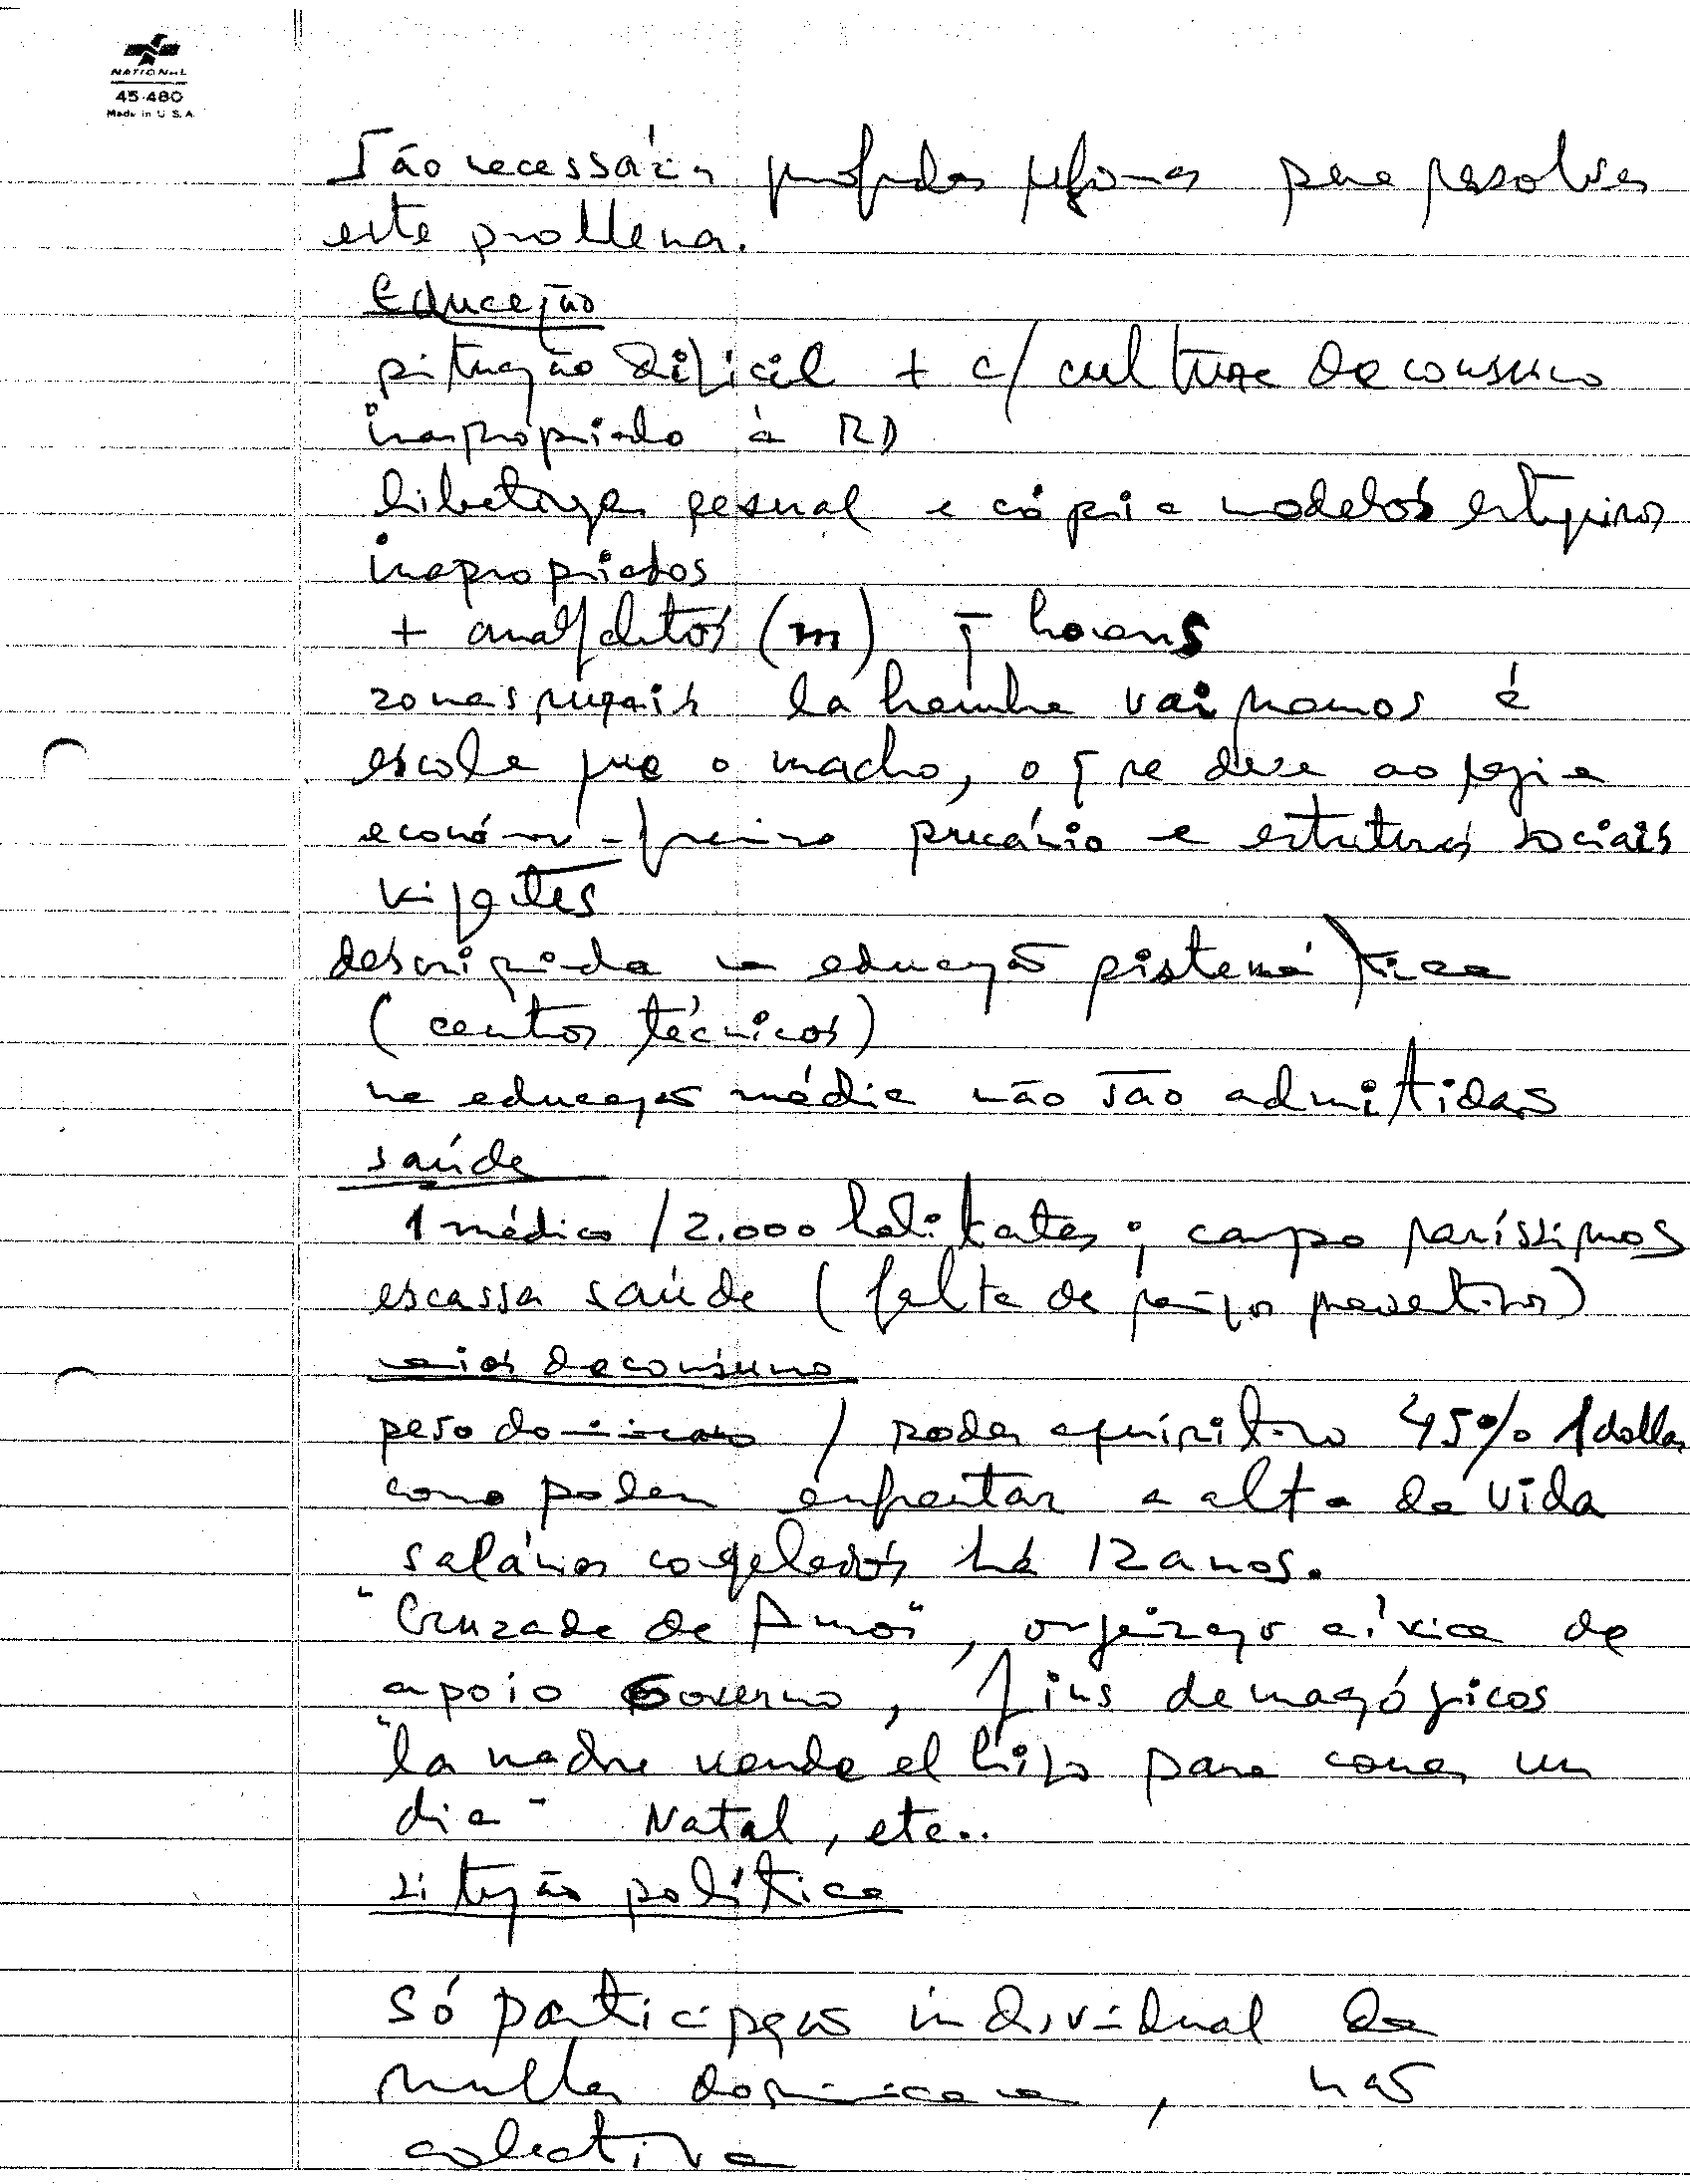 NATIONAL
45-480
Made in U.S.A.
São necessárias profundas reformas para resolver
este problema.
Educação
situação dificil + c/ cultura de consumo
inapropriado à RD
libertação sexual e cópia modelos estrangeiros
inapropriados
+ analfabetos (m) q̄ homens
zonas rurais la hembra vai menos à
escola que o macho, o q̄ se deve ao
precário e estruturas sociais
vigentes
discriminada na educação sistemática
(centros técnicos)
na educação média não são admitidas
saúde
1 médico / 2.000 habitantes; campo raríssimos
escassa saúde (falta de serviços preventivos)
meios de consumo
peso dominicano / poder aquisitivo 45% 1 dollar
como podem enfrentar a alta da vida
salários congelados há 12 anos.
"Cruzada de Amor", organização cívica de
apoio Governo, fins demagógicos
"la madre vende el hijo para comer un
dia" Natal, etc..
situação política
só participação individual da
mulher dominicana, não
colectiva